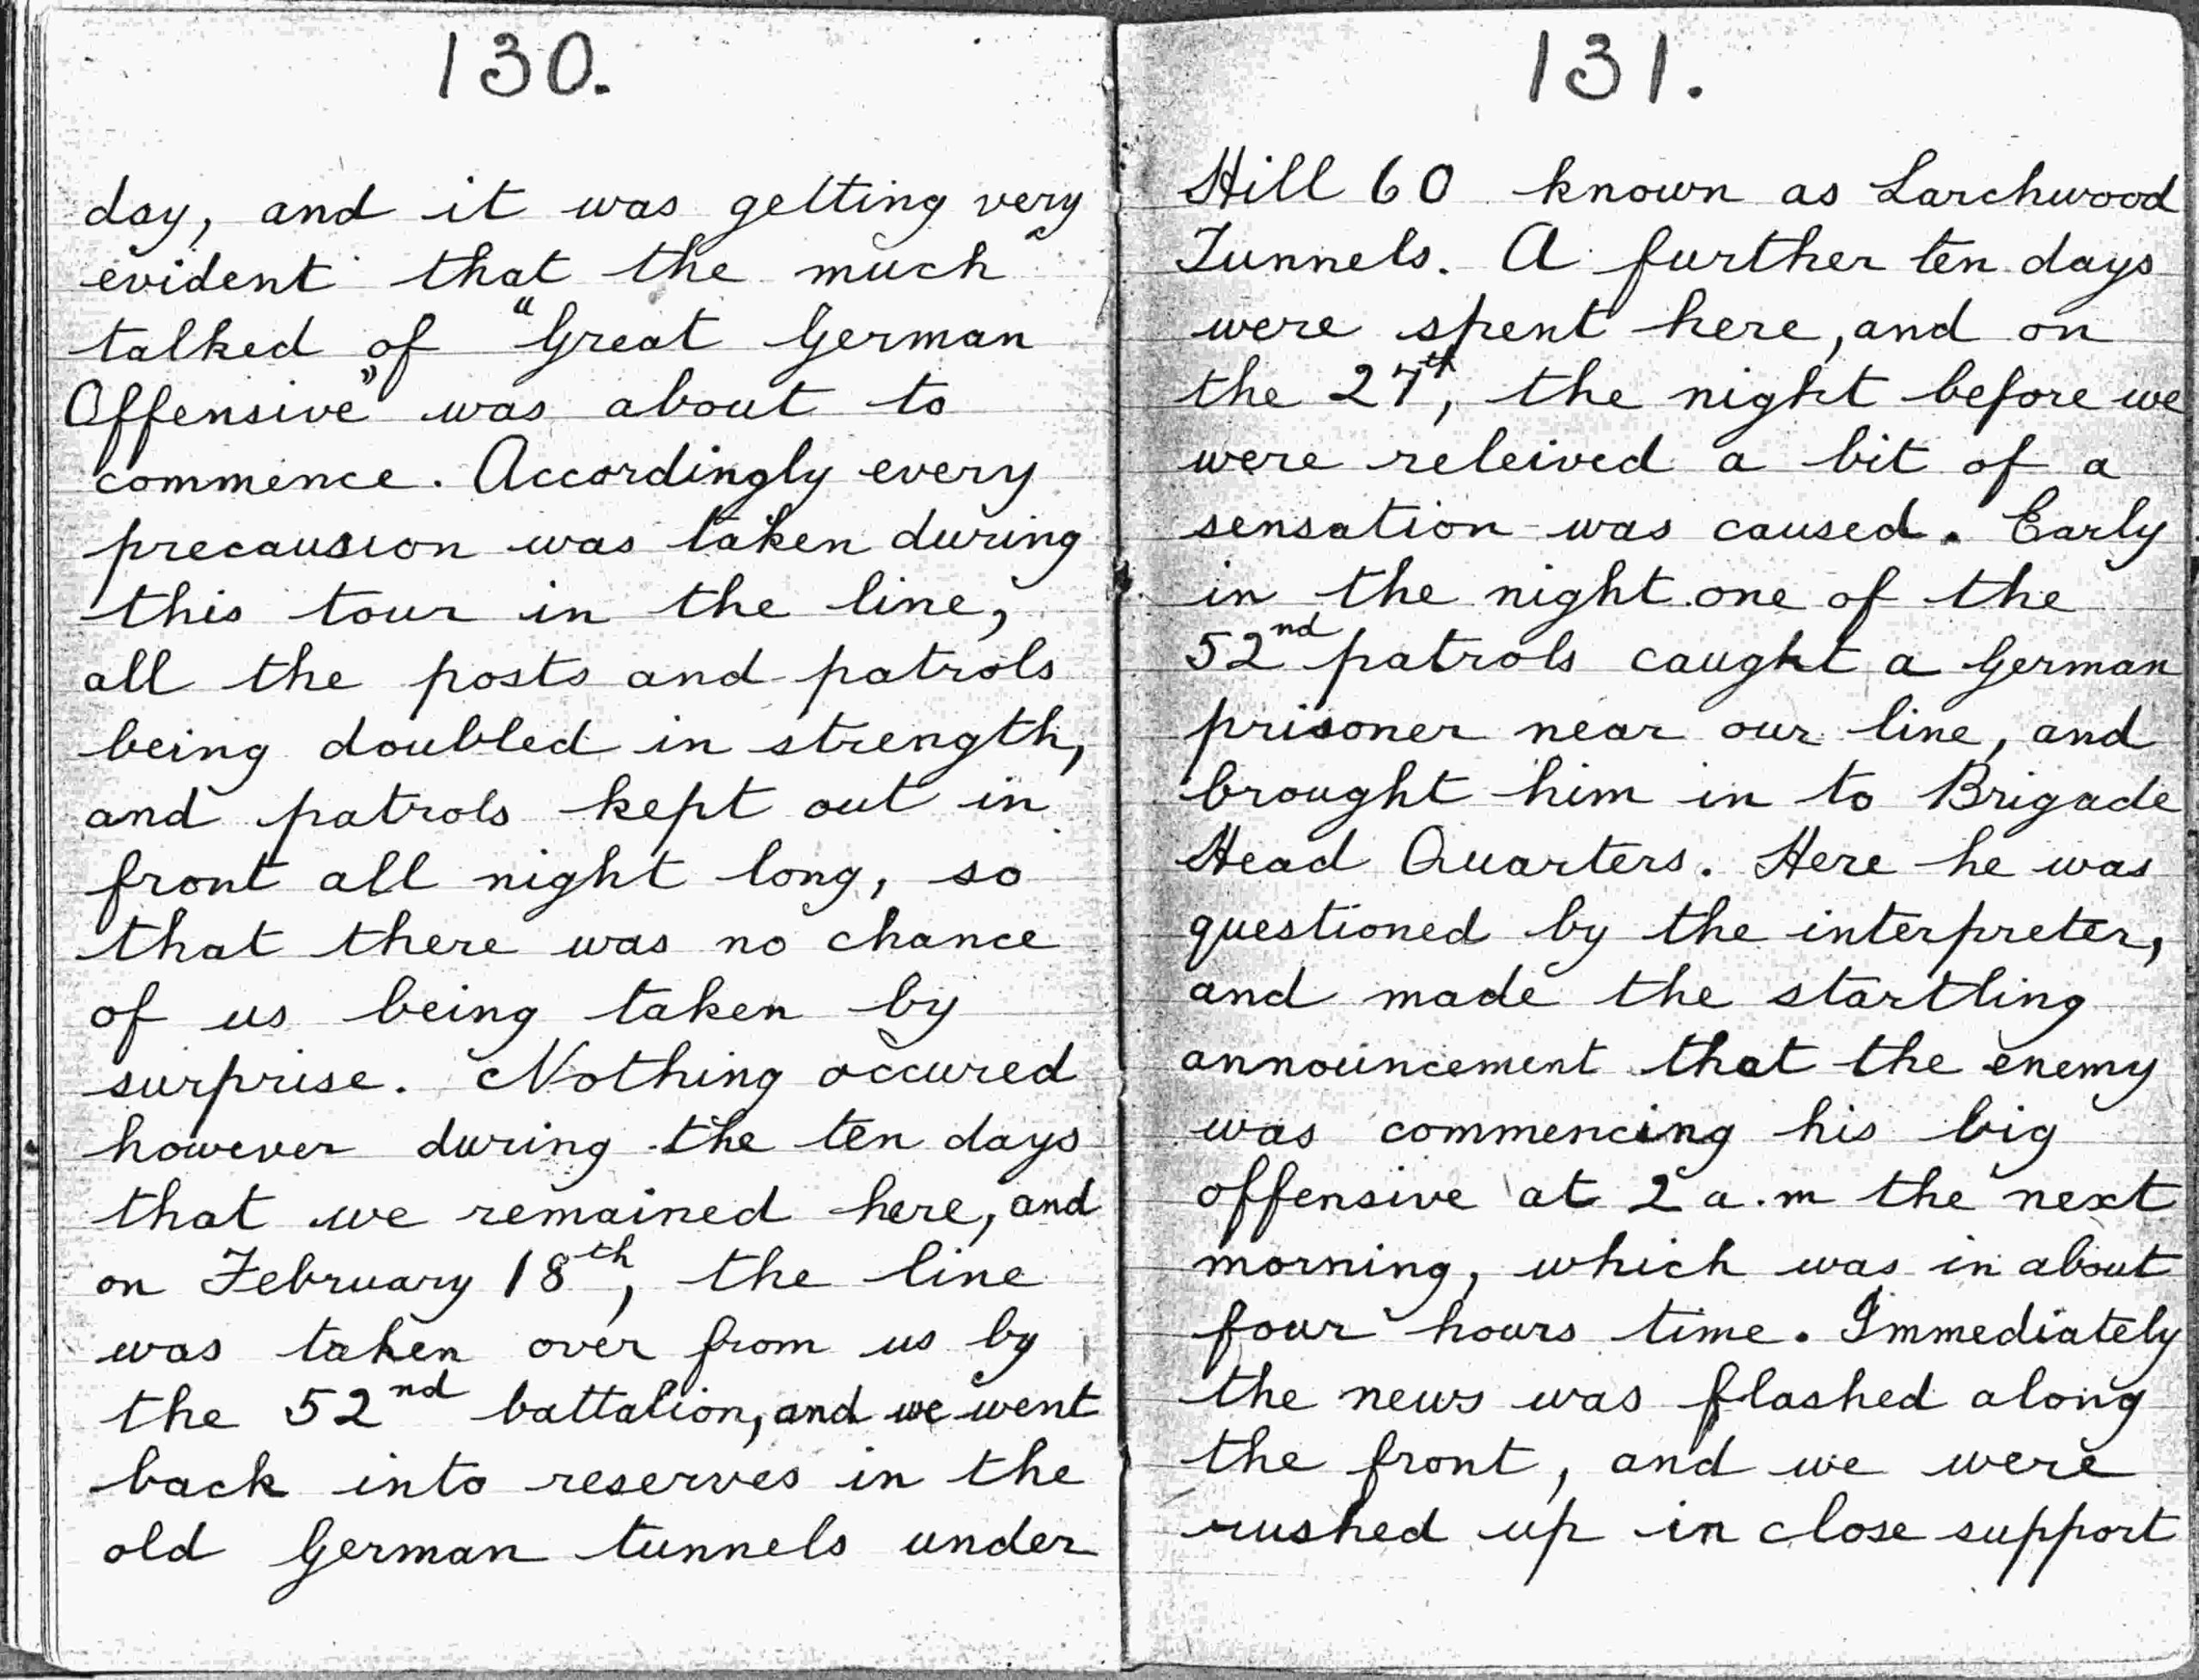 130.
day, and it was getting very
evident that the much
talked of "Great German
Offensive" was about to
commence. Accordingly every
precausion was taken during
this tour in the line,
all the posts and patrols
being doubled in strength,
and patrols kept out in
front all night long, so
that there was no chance
of us being taken by
surprise. Nothing occured
however during the ten days
that we remained here, and
on February 18th, the line
was taken over from us by
the 52nd battalion, and we went
back into reserves in the
old German tunnels under
131.
Hill 60 known as Larchwood
Tunnels. A further ten days
were spent here, and on
the 27th, the night before we
were releived a bit of a
sensation was caused. Early
in the night one of the
52nd patrols caught a German
prisoner near our line, and
brought him in to Brigade
Head Quarters. Here he was
questioned by the interpreter,
and made the startling
announcement that the enemy
was commencing his big
offensive at 2 a.m the next
morning, which was in about
four hours time. Immediately
the news was flashed along
the front, and we were
rushed up in close support